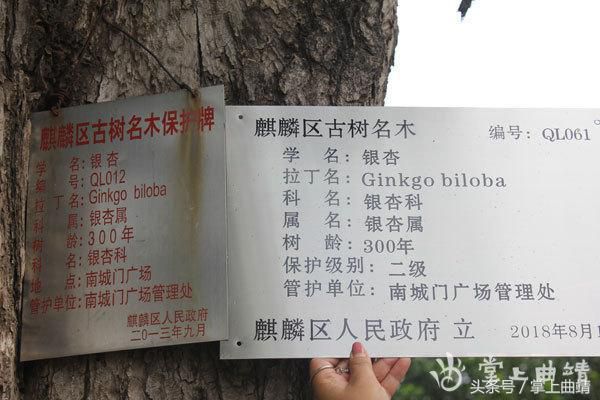 麒麟区古树名木保护牌
学 名：银杏
编 号：QL012
拉 丁 名：Ginkgo biloba
科 属：银杏属
树 龄：300年
科 名：银杏科
地 点：南城门广场
管护单位：南城门广场管理处
麒麟区人民政府
二〇一三年九月
麒麟区古树名木 编号：QL061
学 名：银杏
拉丁名：Ginkgo biloba
科 名：银杏科
属 名：银杏属
树 龄：300年
保护级别：二级
管护单位：南城门广场管理处
麒麟区人民政府 立 2018年8月1
掌上曲靖
头条号 / 掌上曲靖